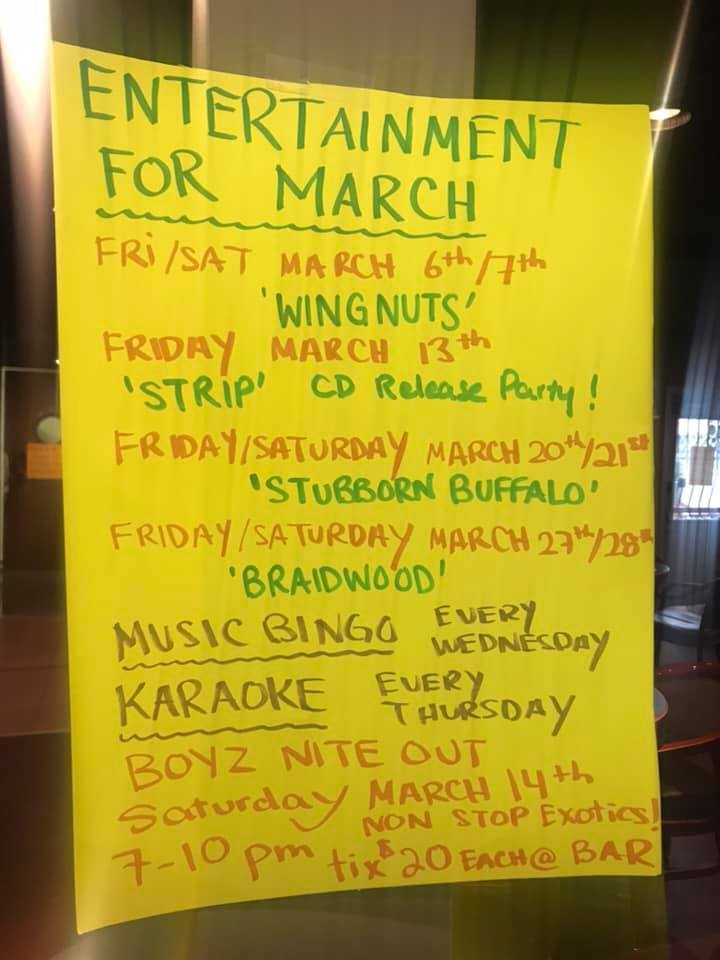 ENTERTAINMENT
FOR MARCH
FRi/SAT MARCH 6th/7th
'WINGNUTS'
FRIDAY MARCH 13th
'STRIP' CD Release Party!
FRIDAY/SATURDAY MARCH 20th/21st
'STUBBORN BUFFALO'
FRIDAY/SATURDAY MARCH 27th/28th
'BRAIDWOOD'
MUSIC BINGO EVERY WEDNESDAY
KARAOKE EVERY THURSDAY
BOYZ NITE OUT
Saturday MARCH 14th
NON STOP Exotics!
7-10 pm tix $20 EACH @ BAR